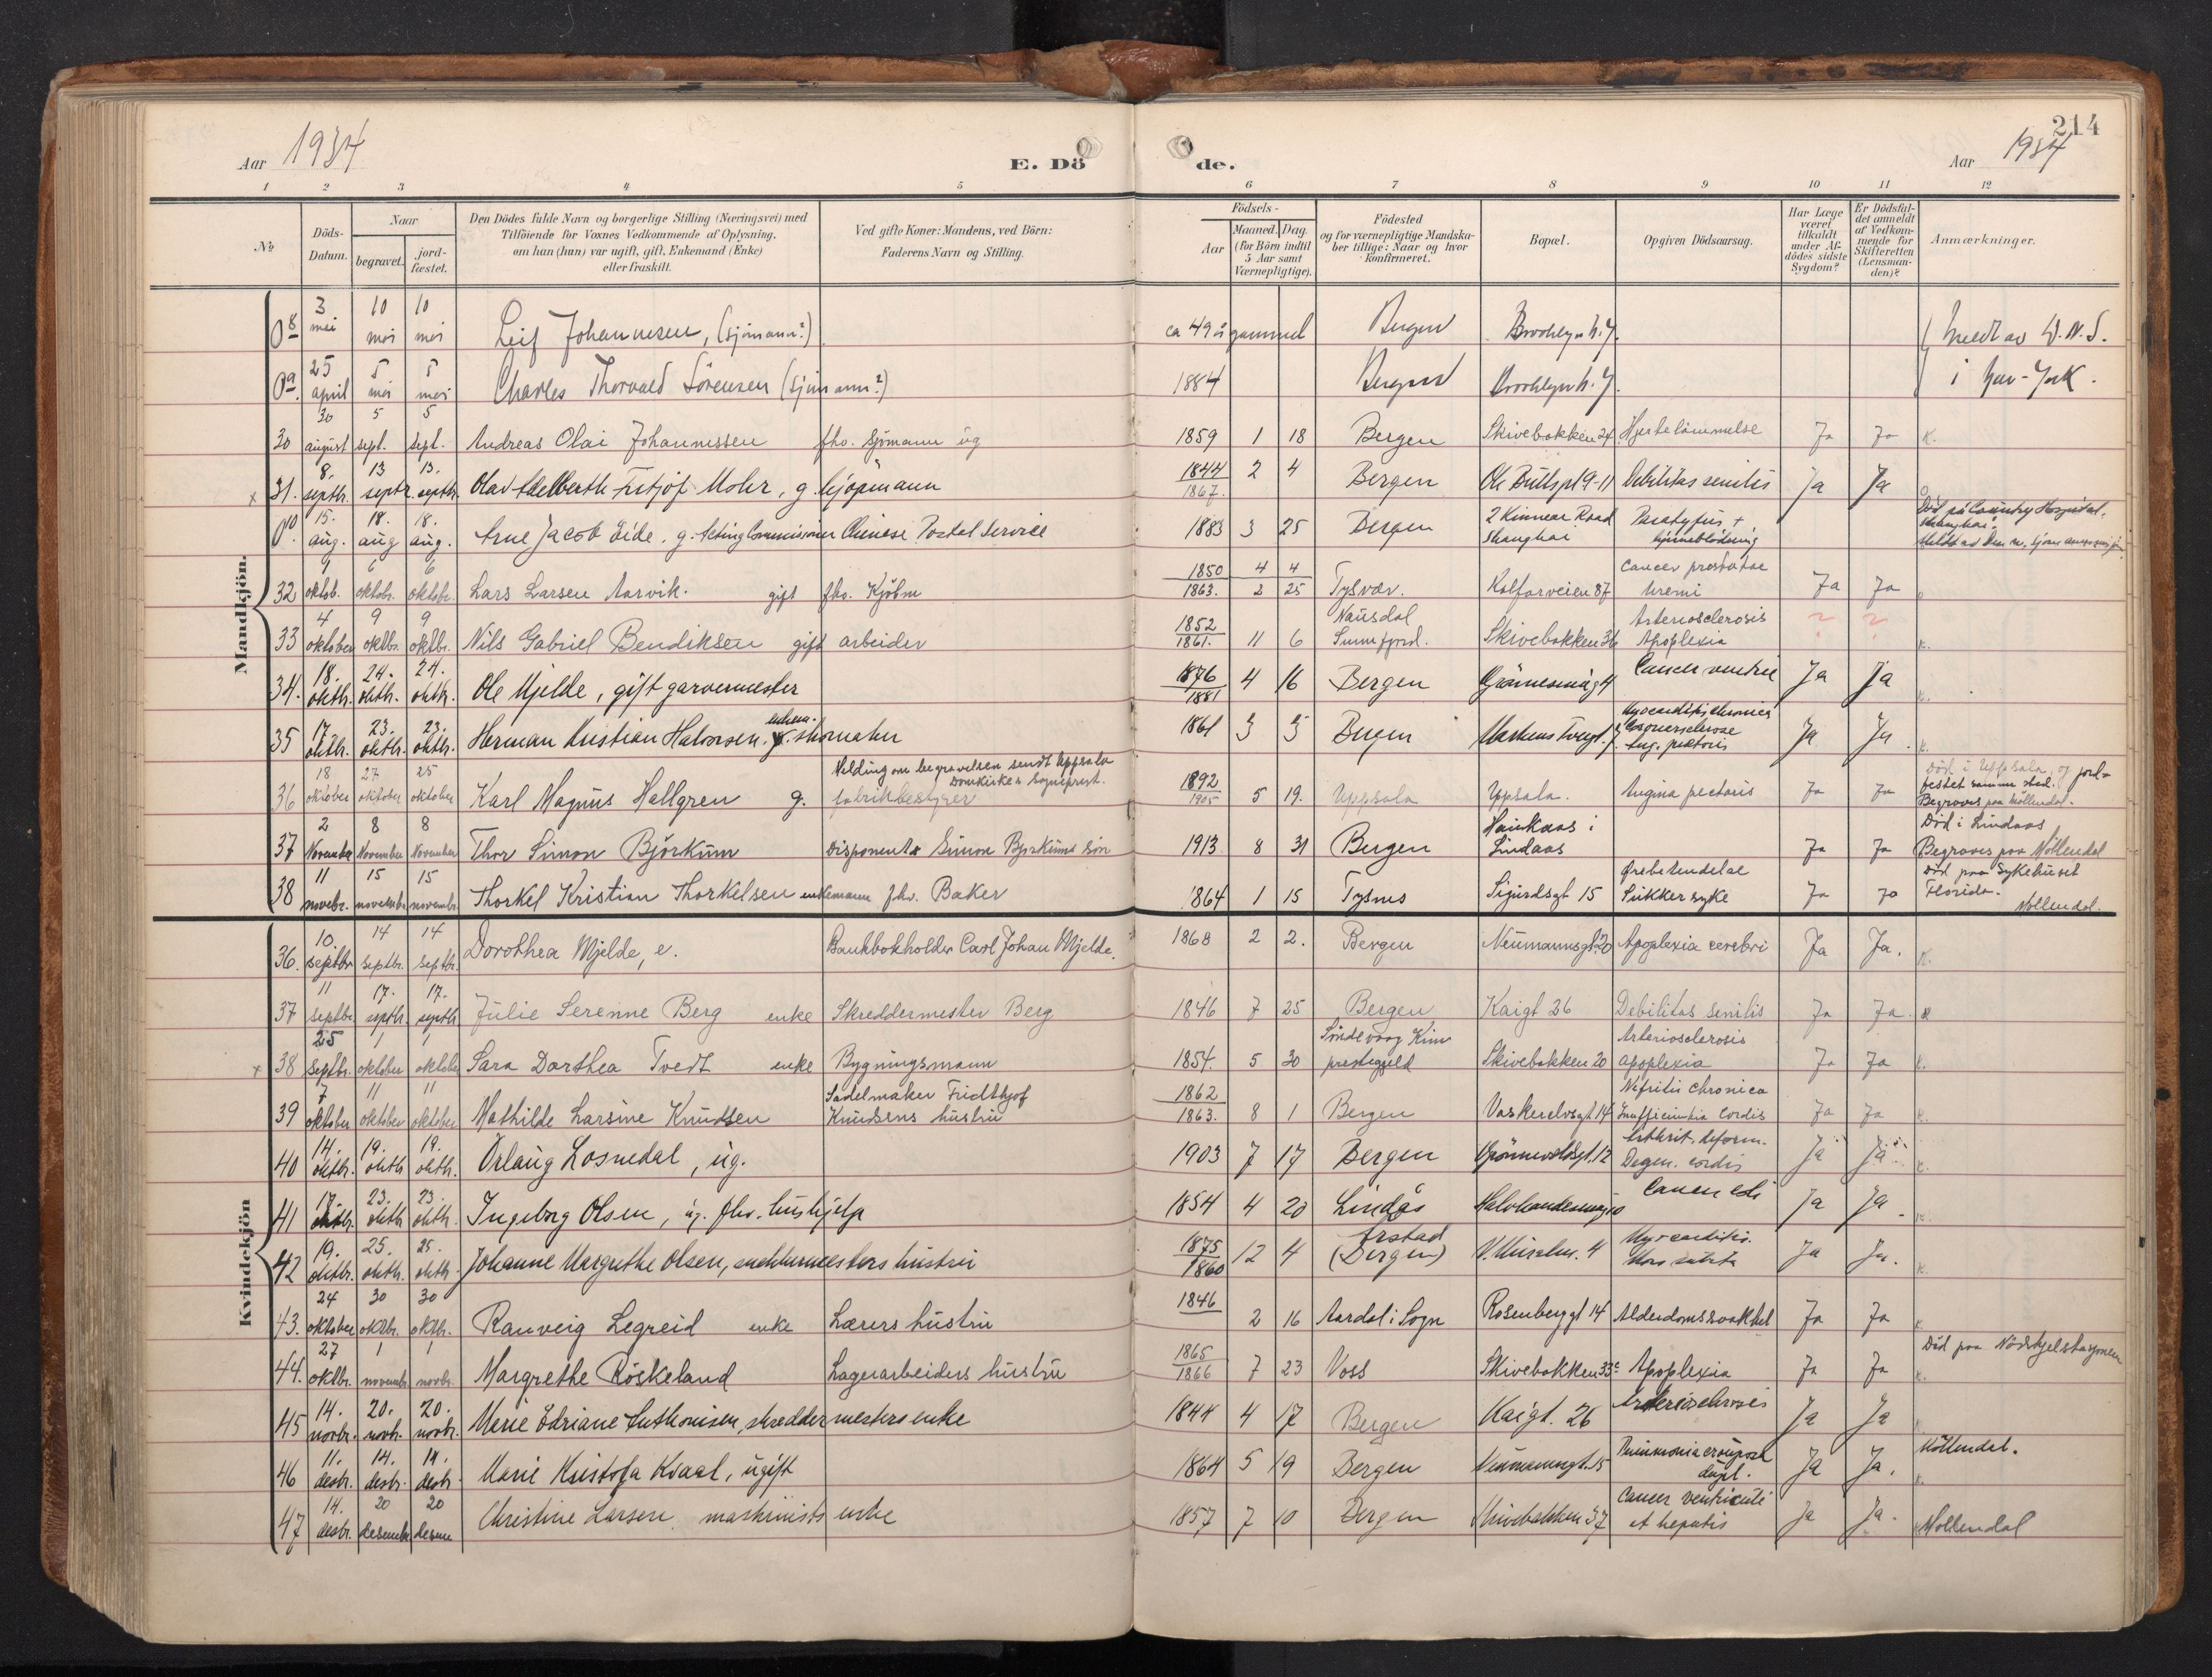 214
Aar 1934 E. Dö de. Aar 1934
1 2 3 4 5 6 7 8 9 10 11 12
№
Döds-Datum.
Naar
begravet.
jord-fæstet.
Den Dödes fulde Navn og borgerlige Stilling (Næringsvei) med
Tilföiende for Voxnes Vedkommende af Oplysning,
om han (hun) var ugift, gift, Enkemand (Enke)
eller fraskilt.
Ved gifte Koner: Mandens, ved Börn:
Faderens Navn og Stilling.
Födsels-
Aar
Maaned. Dag.
(for Börn indtil
5 Aar samt
Værnepligtige).
Födested
og for værnepligtige Mandska-
ber tillige: Naar og hvor
Konfirmeret.
Bopæl.
Opgiven Dödsaarsag.
Har Læge
været
tilkaldt
under Af-
dödes sidste
Sygdom?
Er Dödsfal-
det anmeldt
af Vedkom-
mende for
Skifteretten
(Lensman-
den)?
Anmærkninger.
Mandkjön.
0 8 3 mai 10 mai 10 mai Leif Johannesen, (sjömann?) ca 49 å gammel Bergen Brooklyn N.Y. Meldt av D.N.S.
0 9. 25 april 5 mai 5 mai Charles Thorvald Sörensen (sjömann?) 1884 Bergen Brooklyn N.Y. i New-York.
30 30 august 5 sept. 5 sept. Andreas Olai Johannessen fhv. Sjömann ug 1859 1 18 Bergen Skivebakken 24 Hjertelammelse Ja Ja K.
x 31. 8. septbr. 13 septr. 13. septbr. Olav Adelberth Fritjof Mohr, g. kjöpmann 1844 1867. 2 4 Bergen Ole Bulls pl 9-11 Debilitas senilis Ja Ja
0 10. 15. aug. 18. aug 18. aug. Arne Jacob Eide, g. Acting Commissioner Chinese Postal Service 1883 3 25 Bergen 2 Kinnear Road Shanghai Paratyfus + hjerneblödning Död på Country Hospital, Shanghai.
32 oktob. 6 oktobr. 6 oktobr. Lars Larsen Aarvik. gift fhv. Kjöbm 1850 1863. 4 2 4 25 Tysvær. Kalfarveien 87 Cancer prostatae Uremi Ja Ja
33 4 oktober 9 oktbr. 9 oktbr. Nils Gabriel Bendiksen gift arbeider 1852 1861. 11 6 Nausdal Sunnfjord. Skivebakken 36 Arteriosclerosis Apoplexia ? ? K.
34. 18. oktbr. 24. oktbr. 24. oktbr. Ole Mjelde, gift garvermester 1876 1881 4 16 Bergen Cancer ventric Ja Ja K.
35 17. oktbr. 23. oktbr. 23. oktbr. Herman Kristian Halvorsen. enkem. skomaker 1861 3 5 Bergen Myocarditis chronica Ang. pectoris Ja Ja. K.
36 18 oktober 27 oktober 25 oktober Karl Magnus Hallgren g. fabrikbestyrer Melding om begravelsen sendt Uppsala Domkirkes Sogneprest. 1892 1905 5 19. Uppsala Uppsala. Angina pectoris Ja Ja Död i Uppsala og jord-festet samme sted. Begraves paa Möllendal.
37 2 November 8 November 8 November Thor Simon Björkum Disponent Simon Bjorkums sön 1913 8 31 Bergen Haukaas i Lindaas Ja Ja Död i Lindaas Begraves paa Möllendal
38 11 novebr. 15 novembr 15 novembr Thorkel Kristian Thorkelsen enkemann fhv. Baker 1864 1 15 Tysnes Sigurdsgt 15 Ørebetendelse Sukkersyke Ja Ja Död paa Sykehuset Florida. Möllendal.
Kvindekjön
36. 10. septbr 14 septbr. 14 septbr. Dorothea Mjelde, e. Bankbokholder Carl Johan Mjelde. 1868 2 2. Bergen Neumannsgt. 20 Apoplexia cerebri Ja Ja. K.
37 11 septbr. 17. septbr. 17. septbr Julie Serenne Berg enke Skreddermester Berg 1846 7 25 Bergen Kaigt 26 Debilitas senilis Ja Ja.
x 38 25 septbr. 1 oktober 1 oktober Sara Dorthea Tvedt enke Bygningsmann 1854. 5 30 prestegjeld Skivebakken 20 Arteriosclerosis apoplexia Ja Ja K.
39 7 oktober 11 oktober 11 oktober Mathilde Larsine Knudsen Sadelmaker Fridthjof Knudsens hustru 1862 1863. 8 1 Bergen Vaskerelvsgt. 14 Nefritis chronica Insufficientia cordis Ja Ja K.
40 14. oktbr. 19. oktbr 19. oktbr. Orlaug Losnedal, ug. 1903 7 17 Bergen Grönnevoldsgt. 12 Arthrit. deform. Degen. cordis Ja Ja K.
41 17. oktbr. 23. oktbr 23. oktbr. Ingeborg Olsen, ug. fhv. hushjelp 1854 4 20 Lindås Cancer coli Ja Ja. K.
42 19. oktbr. 25. oktbr. 25. oktbr. Johanne Margrethe Olsen, snekkermesters hustru 1875 1860 12 4 Årstad (Bergen) Myocarditis. Mors subita Ja Ja. K.
43. 24 oktober 30 oktbr. 30 oktbr. Ranveig Legreid enke Lærers hustru 1846 2 16 Aardal i Sogn Rosenberggt 14 Alderdomssvakhet Ja Ja K.
44. 27 oktbr. 1 novembr. 1 novbr. Margrethe Röskeland Lagerarbeiders hustru 1865 1866 7 23 Voss Skivebakken 33c Apoplexia Ja Ja Död paa Nödhjelstasjonen K.
45 14. novbr. 20. novbr. 20. novbr. Marie Edriane Anthonisen, skreddermesters enke 1844 4 17 Bergen Kaigt. 26 Arteriosclerosis Ja Ja
46 11. desbr. 14. desbr. 14. desbr Marie Kristofa Kvaal, ugift 1864 5 19 Bergen Neumannsgt. 15 Pneumonia crouposa dupl. Ja Ja. Möllendal. K.
47 14. desbr. 20 desembr 20 desem Christine Larsen maskinists enke 1857 7 10 Bergen Skivebakken 37 Cancer ventriculi et hepatis Ja Ja. Möllendal